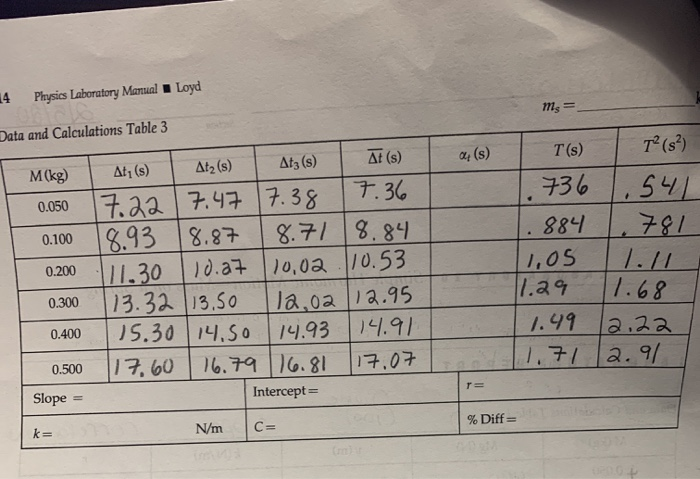 14 Physics Laboratory Manual ■ Loyd
mₛ =
Data and Calculations Table 3
M (kg) Δt₁ (s) Δt₂ (s) Δt₃ (s) Δt̅ (s) αₜ (s) T (s) T² (s²)
0.050 7.22 7.47 7.38 7.36 .736 .541
0.100 8.93 8.87 8.71 8.84 .884 .781
0.200 11.30 10.27 10,02 10.53 1,05 1.11
0.300 13.32 13,50 12,02 12.95 1.29 1.68
0.400 15.30 14,50 14.93 14.91 1.49 2.22
0.500 17.60 16.79 16.81 17.07 1.71 2.91
Slope = Intercept = r =
k = N/m C = % Diff =